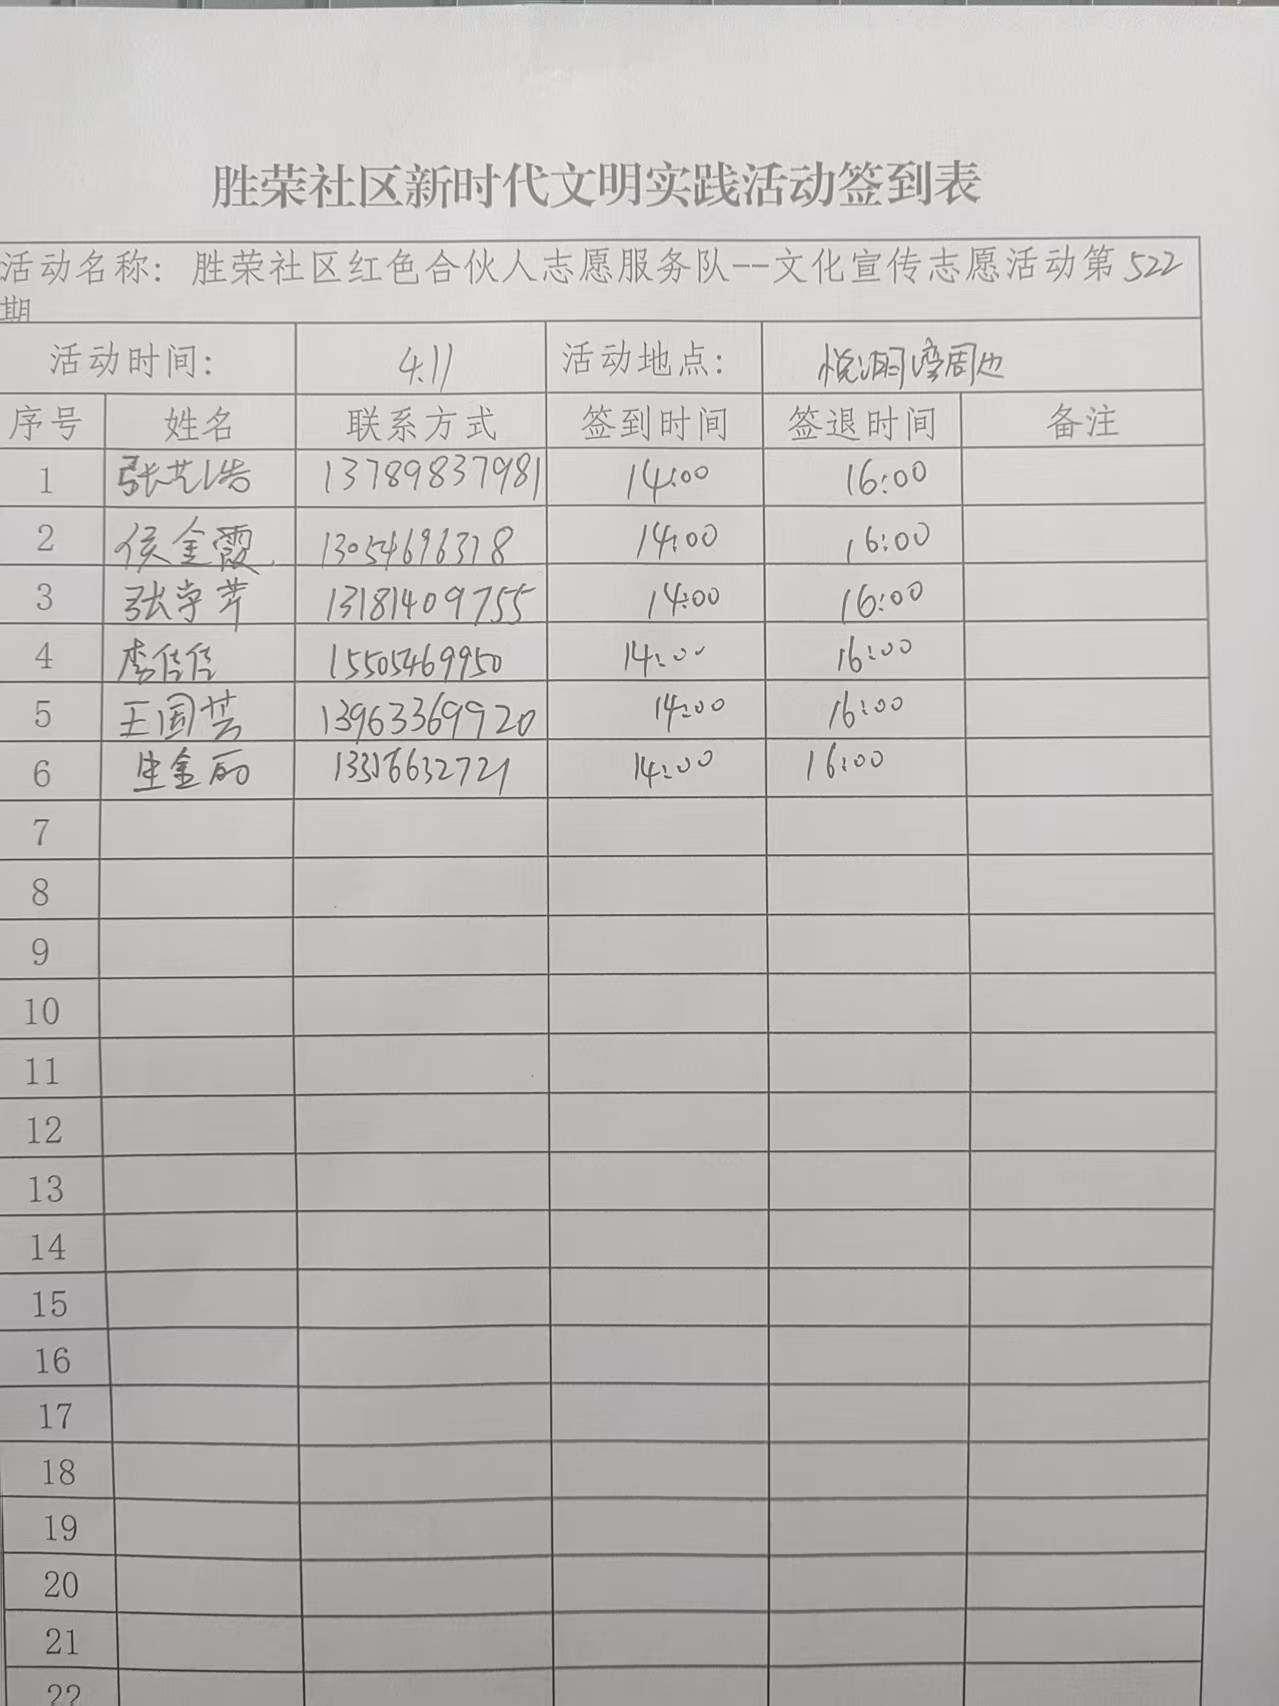 胜荣社区新时代文明实践活动签到表
活动名称：胜荣社区红色合伙人志愿服务队--文化宣传志愿活动第522
期
活动时间： 4.11 活动地点： 悦湖湾周边
序号 姓名 联系方式 签到时间 签退时间 备注
1 张艺浩 13789837981 14:00 16:00
2 侯金霞 13054696378 14:00 16:00
3 张学芹 13181409755 14:00 16:00
4 李佳佳 15505469950 14:00 16:00
5 王国芸 13963369920 14:00 16:00
6 生金丽 14:00 16:00
7
8
9
10
11
12
13
14
15
16
17
18
19
20
21
22